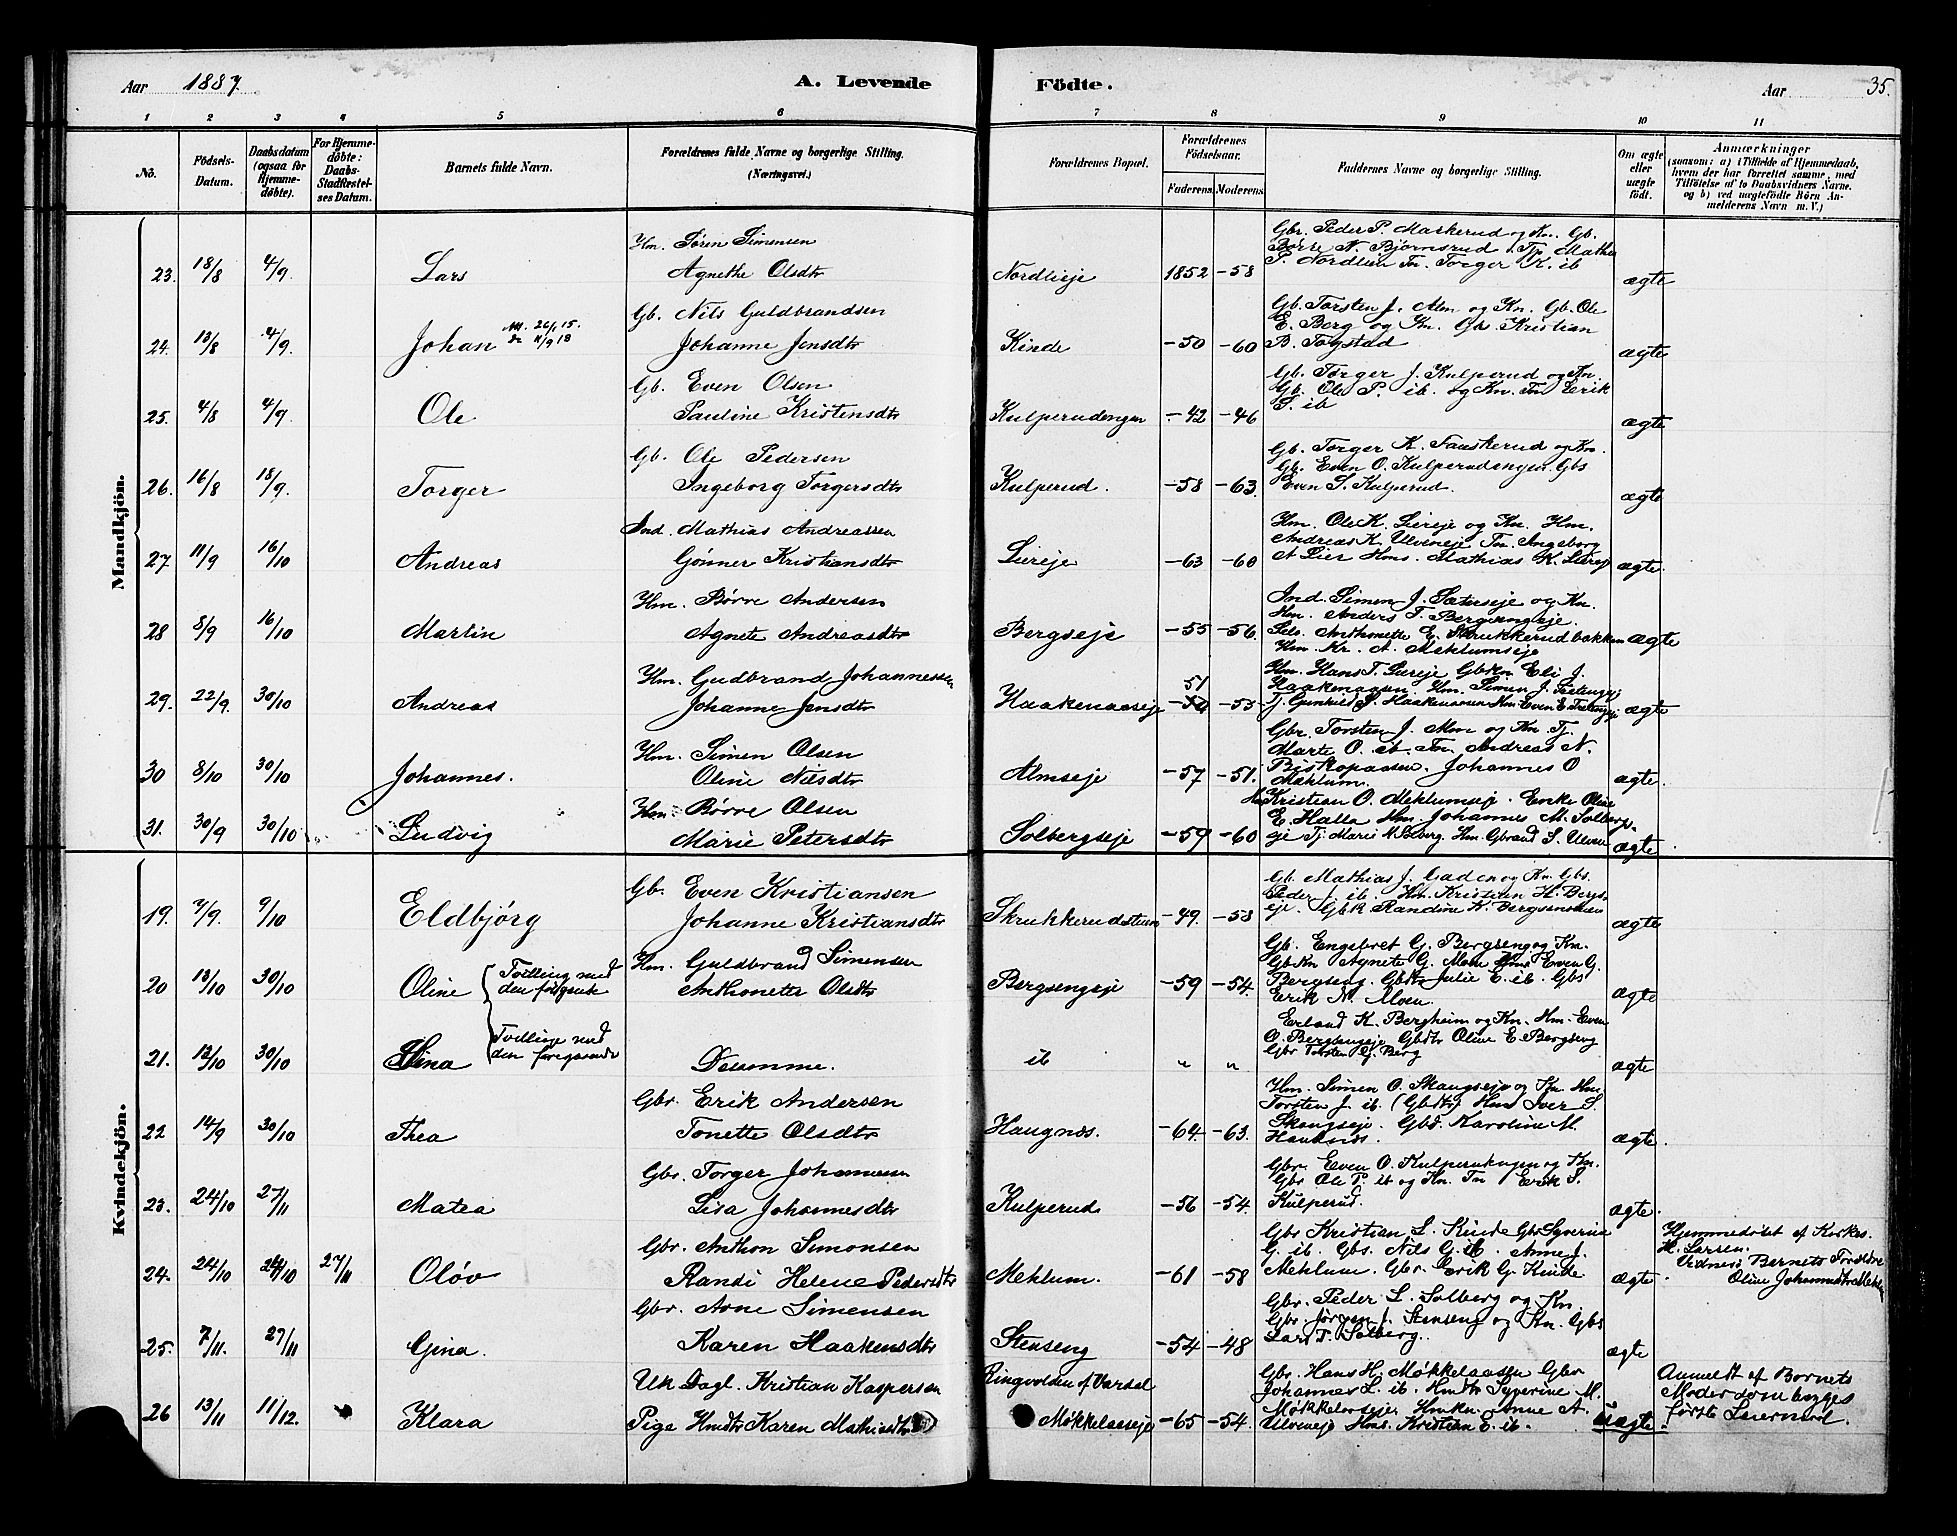 Aar 1887. A. Levende Födte. Aar 35.
1 2 3 4 5 6 7 8 9 10 11
No.
Födsels-Datum.
Daabsdatum (ogsaa for Hjemme-döbte).
For Hjemme-döbte: Daabs-Stadfæstel-ses Datum.
Barnets fulde Navn.
Forældrenes fulde Navne og borgerlige Stilling. (Næringsvei.)
Forældrenes Bopæl.
Forældrenes Födselsaar.
Faderens. Moderens.
Faddernes Navne og borgerlige Stilling.
Om ægte eller uægte födt.
Anmærkninger
(saasom: a) i Tilfælde af Hjemmedaab,
hvem der har forrettet samme, med
Tilföielse af to Daabsvidners Navne,
og b) ved uægtefödte Börn An-
melderens Navn m. V.)
Mandkjön.
Hm. Søren Simensen
23. 18/8 4/9. Lars Agnethe Olsdtr Nordlieje 1852 -58 ægte
Gbr. Peder P. Maskerud og Kn. Gb.
Børre N. Bjørnsrud
P. Nordlien Tn. Torger K. ib
Gb. Nils Guldbrandsen
24. 13/8 4/9. Johan Johanne Jensdtr Kinde -50 -60 ægte
Gb. Torsten J. Alm og Kn. Gb. Ole
E. Berg og Kn. Gb. Kristian
B. Fogstad
Gb. Even Olsen
25. 4/8 4/9 Ole Pauline Kristensdtr Kulperudengen -42 -46 ægte
Gb. Torger J. Kulperud og Kn.
Gb. Ole P. ib. og Kn. Tn Erik
S. ib
Gb. Ole Pedersen
26. 16/8 18/9. Torger Ingeborg Torgersdtr Kulperud. -58 -63. ægte
Gb. Torger K. Fauskerud og Kn.
Gb. Even O. Kulperudengen Gbs
Even S. Kulperud.
Ind. Mathias Andreassen
27 11/9 16/10 Andreas Gønner Kristiansdtr Liereje -63 -60 ægte.
Hm. Ole K. Liereje og Kn. Hm.
Andreas K. Ulveneje Tn. Ingeborg
A Lier Hms. Mathias K. Liereje
Hm. Børre Andersen
28 8/9 16/10 Martin Agnete Andreasdtr Bergseje -55 -56. ægte
Ind. Simen J. Sæterseje og Kn.
Hm. Anders T. Bergsengeje.
Anthonette E. Skrukkerudbakken
Hm. Kr. A. Meklumseje
Hm. Gudbrand Johannessen
29. 22/9. 30/10 Andreas Johanne Jensdtr Haakenaaseje 51 -53 ægte
Hm. Hans T. Liereje Gbkn Eli J.
Haakenaasen. Hm. Simen J.
Hm. Simen Olsen
30 8/10 30/10 Johannes. Oline Nilsdtr Almseje -57 -51. ægte.
Gbr. Torsten J. Alm og Kn Tj.
Marte O. ib. Tn. Andreas N.
Biskopaasen. Johannes O
Meklum.
Hm. Børre Olsen
31. 30/9 30/10 Ludvig Marie Petersdtr Solbergseje -59 -60 ægte
Kristian O. Meklumseje. Enke Oline
E. Halla Hm. Johannes M. Solbergs-
eje Tj. Marie M Solberg. Hm. Gbrand S. Ulven
Kvindekjön.
Gb. Even Kristiansen
19. 7/9. 9/10 Eldbjörg Johanne Kristiansdtr Skrukkerudstuen -49. -53 ægte
Gb. Mathias J. Gaden og Kn. Gbs.
Peder J. ib. Hm. Kristian H. Bergs-
eje. Gbk Randine K. Bergsenstuen
Hm. Guldbrand Simensen
20 13/10 30/10 Oline Tvilling med den følgende Anthonette Olsdtr Bergsengeje -59 -54. ægte
Gb. Engebret G. Bergseng og Kn.
Gbkn Agnete G. Moen Hms Even G.
Bergseng. Gbdtr Julie E. ib. Gbs
Erik N. Moen.
21. 13/10 30/10 Stina Tvilling med den foregaaende Desamme. ib " " ægte
Erland K. Bergheim og Kn. Hm. Even
O. Bergsengeje Gbdtr Oline E. Bergseng
Gbr Torsten G. Berg
Gbr. Erik Andersen
22 14/9 30/10 Thea Tonette Olsdtr Haugnæs. -64. -63. ægte
Hm. Simen O. Skaugseje og Kn. Hm.
Torsten J. ib. (Gbdtr) Hms Iver S.
Skaugseje. Gbd. Karoline M.
Haugnæs.
Gbr. Torger Johannesen
23. 24/10 27/11 Matea Lisa Johannesdtr Kulperud -56 -54. ægte.
Gbr. Even O. Kulperudengen og Kn.
Gbs Ole P. ib og Kn. Tn Erik S.
Kulperud.
Gbr. Anthon Simonsen
24. 24/10 24/10 27/11 Oløv Randi Helene Pedersdtr Meklum. -61 -58 ægte
Gbr Kristian L. Kinde Gbr Syverine
G. ib. Gbs. Nils G. ib. Anne J.
Meklum. Gbr. Erik G. Kinde
Hjemmedøbt af Kirkes.
H. Larsen.
Vidner: Barnets Forældre
Gbr. Arne Simensen
25. 7/11. 27/11 Gina. Karen Haakensdtr Stenseng -54 -48 ægte
Gbr. Peder L. Solberg og Kn.
Gbr. Jørgen J. Stenseng og Kn. Gbs
Lars T. Solberg.
Uk Dagl. Kristian Kaspersen Ringvolden af Vardal
26 13/11 11/12. Klara Pige Hmdtr Karen Mathisdtr Møkkelaaseje -65 -54. uægte.
Gbr. Hans H. Møkkelaasen Gbr
Johannes L. ib. Hmdtr Syverine M.
Møkkelaaseje. Hmkn. Anne A.
Ulveneje Hms. Kristian E. ib.
Anmeldt af Barnets
Moder som begges
første Leiermaal.